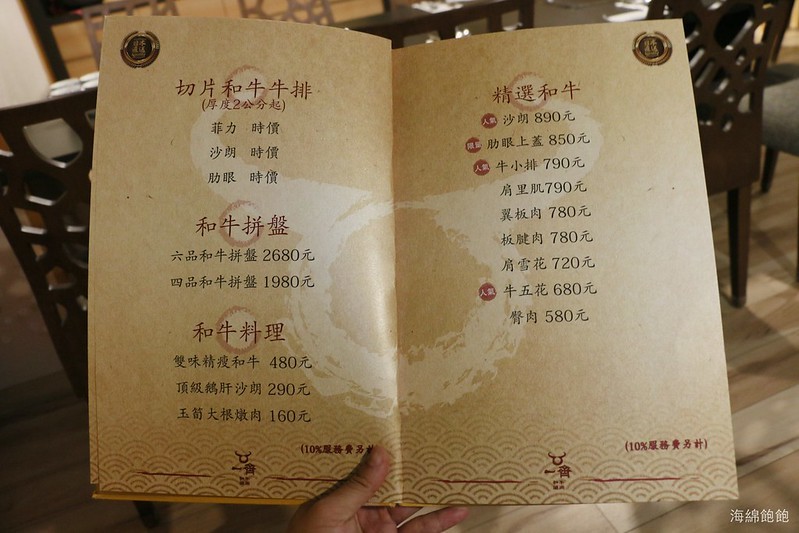 切片和牛牛排
(厚度2公分起)
菲力 時價
沙朗 時價
肋眼 時價
和牛拼盤
六品和牛拼盤 2680元
四品和牛拼盤 1980元
和牛料理
雙味精瘦和牛 480元
頂級鵝肝沙朗 290元
玉筍大根燉肉 160元
(10%服務費另計
一齊
精選和牛
人氣 沙朗 890元
限量 肋眼上蓋 850元
人氣 牛小排 790元
肩里肌790元
翼板肉 780元
板腱肉 780元
肩雪花 720元
人氣 牛五花 680元
臀肉 580元
(10%服務費另計)
一齊
海綿飽飽